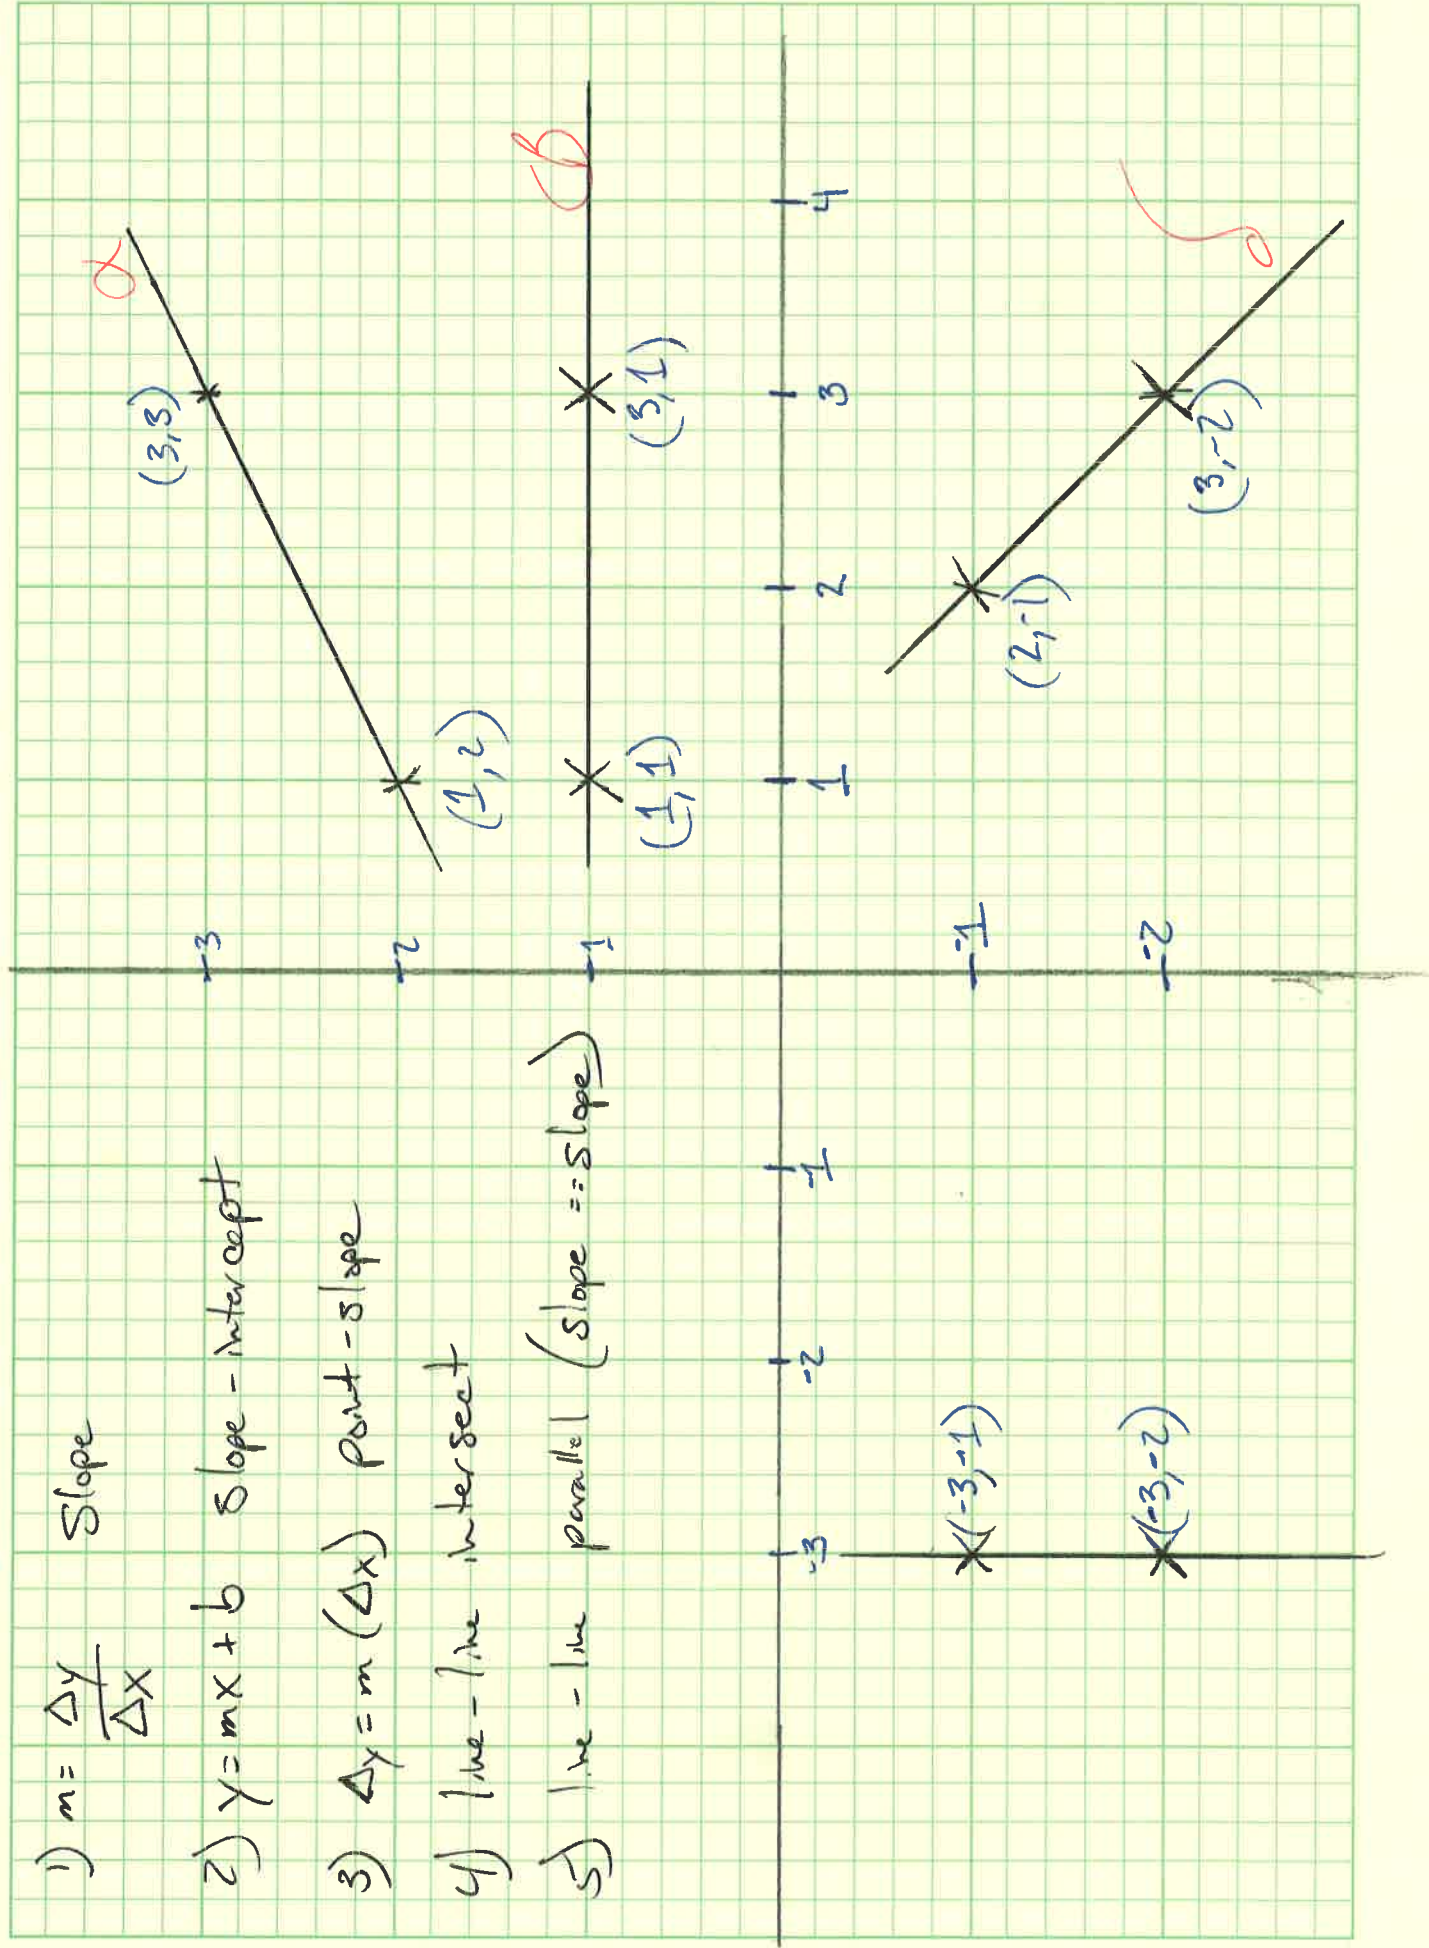 1) m = Δy/Δx Slope
2) y = mx + b Slope-intercept
3) Δy = m (Δx) point-slope
4) line-line intersect
5) line-line parallel (slope == slope)
α
(3,3)
3
(1,2)
2
B
1
(1,1)
(3,1)
-3
-2
-1
1
2
3
4
(-3,-1)
-1
(2,-1)
(-3,-2)
-2
(3,-2)